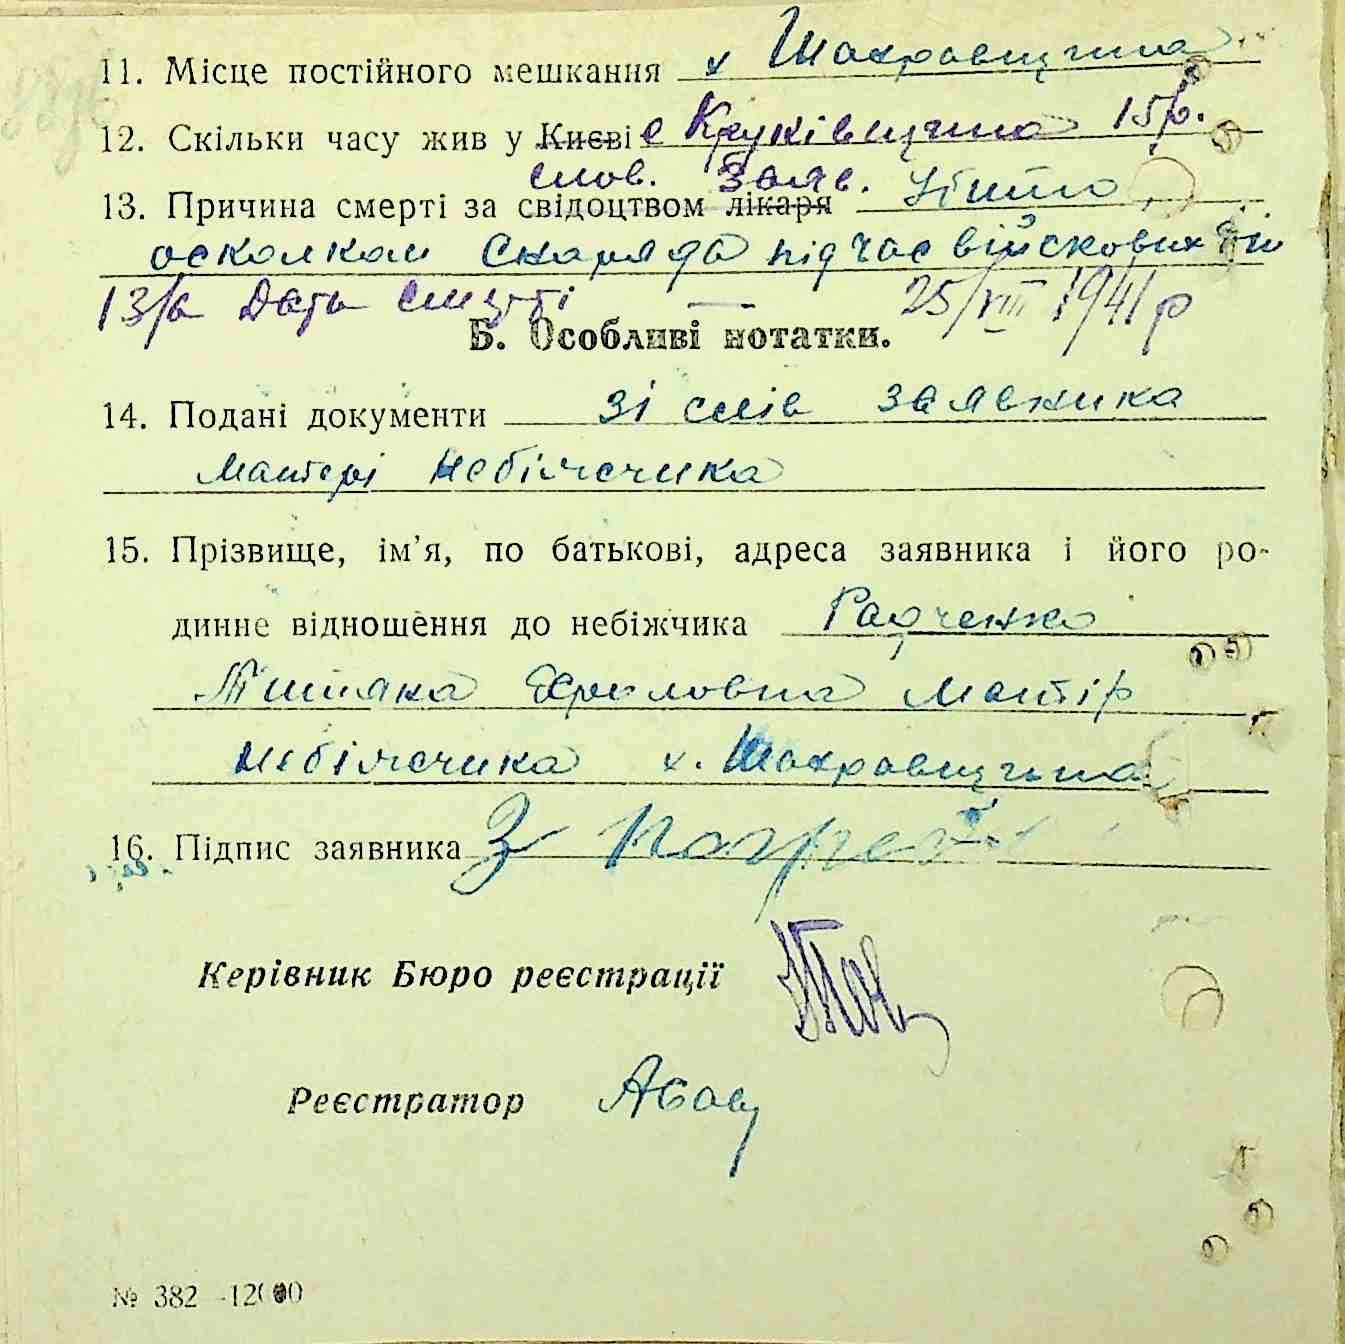 11. Місце постійного мешкання х Шахравщина
12. Скільки часу жив у Києві с Круківщина 15 р.
слов. Заяв.
13. Причина смерті за свідоцтвом лікаря Убито
осколком снаряда під час військових дій
13/а Дата смерті — 25/VIII 1941 р
Б. Особливі нотатки.
14. Подані документи зі слів заявника
Матері небіжчика
15. Прізвище, ім’я, по батькові, адреса заявника і його ро-
динне відношення до небіжчика Радченко
матір
небіжчика х. Шахравщина
16. Підпис заявника З
Керівник Бюро реєстрації
Реєстратор
№ 382 -12000